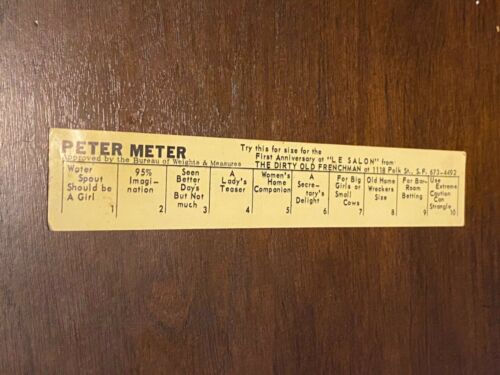 PETER METER
Approved by the Bureau of Weights & Measures
Try this for size for the
First Anniversary of "LE SALON" from
THE DIRTY OLD FRENCHMAN at 1118 Polk St., S.F. 673-4492
Water
Spout
Should be
A Girl
1
95%
Imagi-
nation
2
Seen
Better
Days
But Not
much
3
A
Lady's
Teaser
4
Women's
Home
Companion
5
A
Secre-
tary's
Delight
6
For Big
Girls or
Small
Cows
7
Old Home
Wreckers
Size
8
For Bar-
Room
Betting
9
Use
Extreme
Caution
Can
Strangle
10